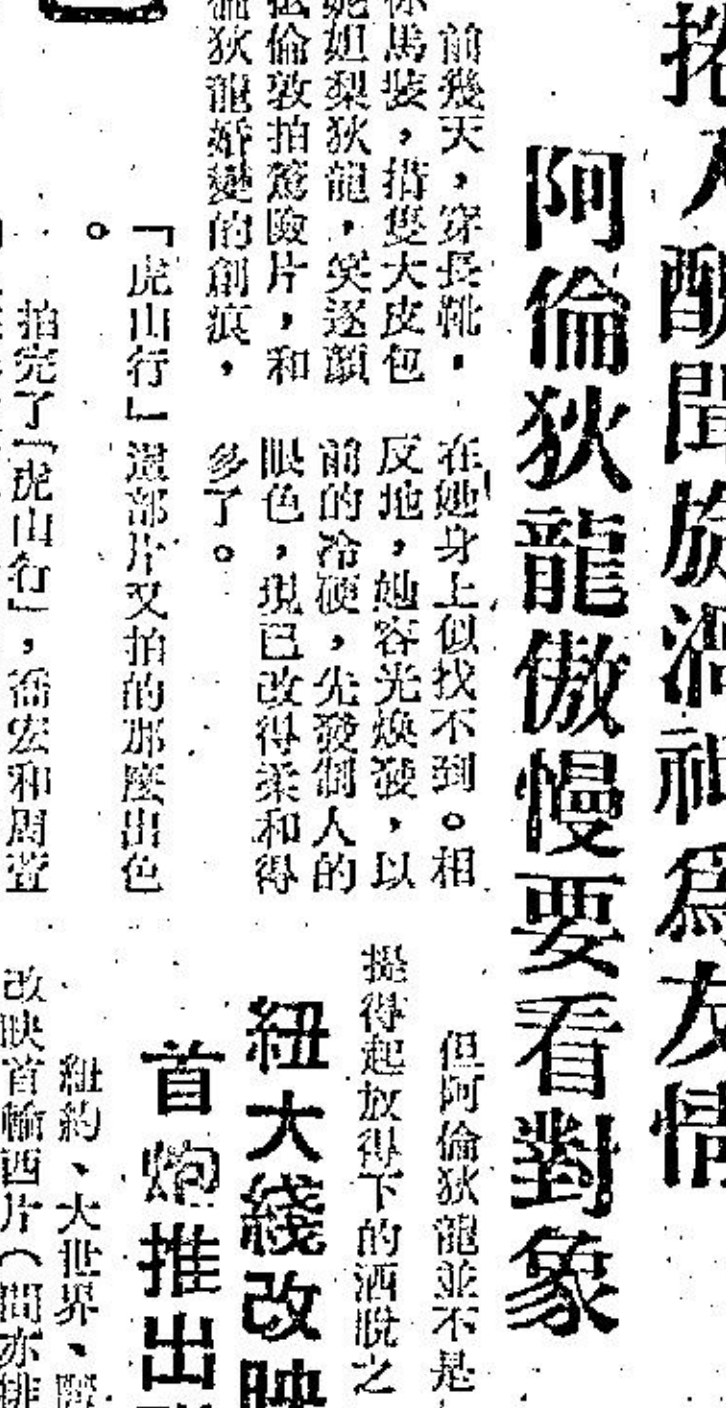 捲入醜聞旋渦祇為友情
阿倫狄龍傲慢要看對象
前幾天，穿長靴，
你馬裝，揹隻大皮包
妮妲梨狄龍，笑逐顏
倫敦拍驚險片，和
狄龍婚變的創痕，
在她身上似找不到。相
反地，她容光煥發，以
前的冷硬，先發制人的
眼色，現已改得柔和得
多了。
「虎山行」這部片又拍的那麼出色
。
拍完了「虎山行」，喬宏和周萱
但阿倫狄龍並不是
提得起放得下的洒脫之
紐大綫改映
首炮推出
紐約、大世界、
改映首輪西片（間亦排